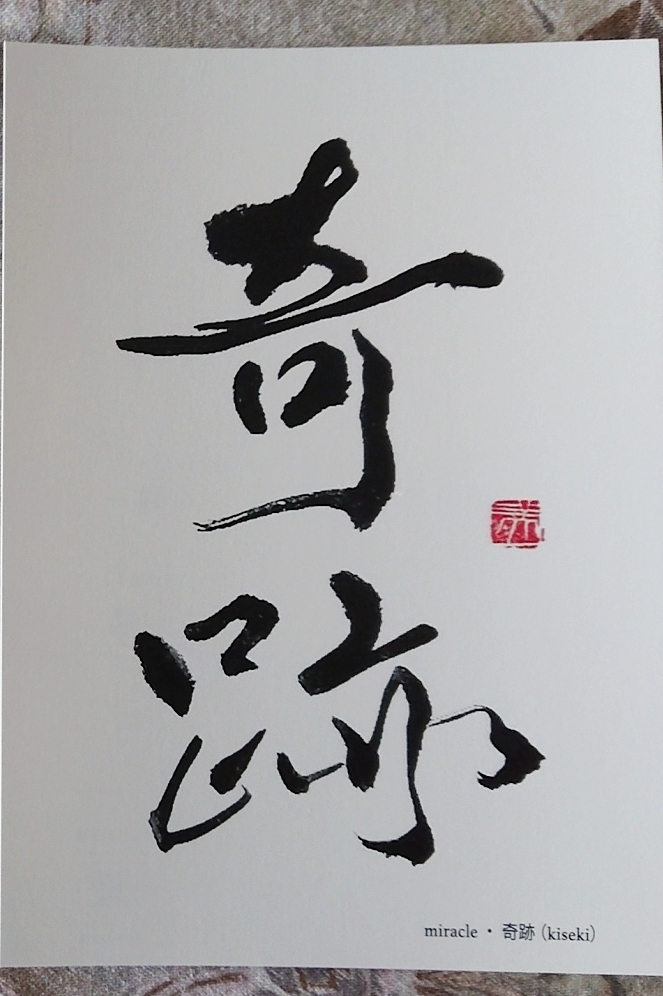 奇
跡
miracle・奇跡 (kiseki)